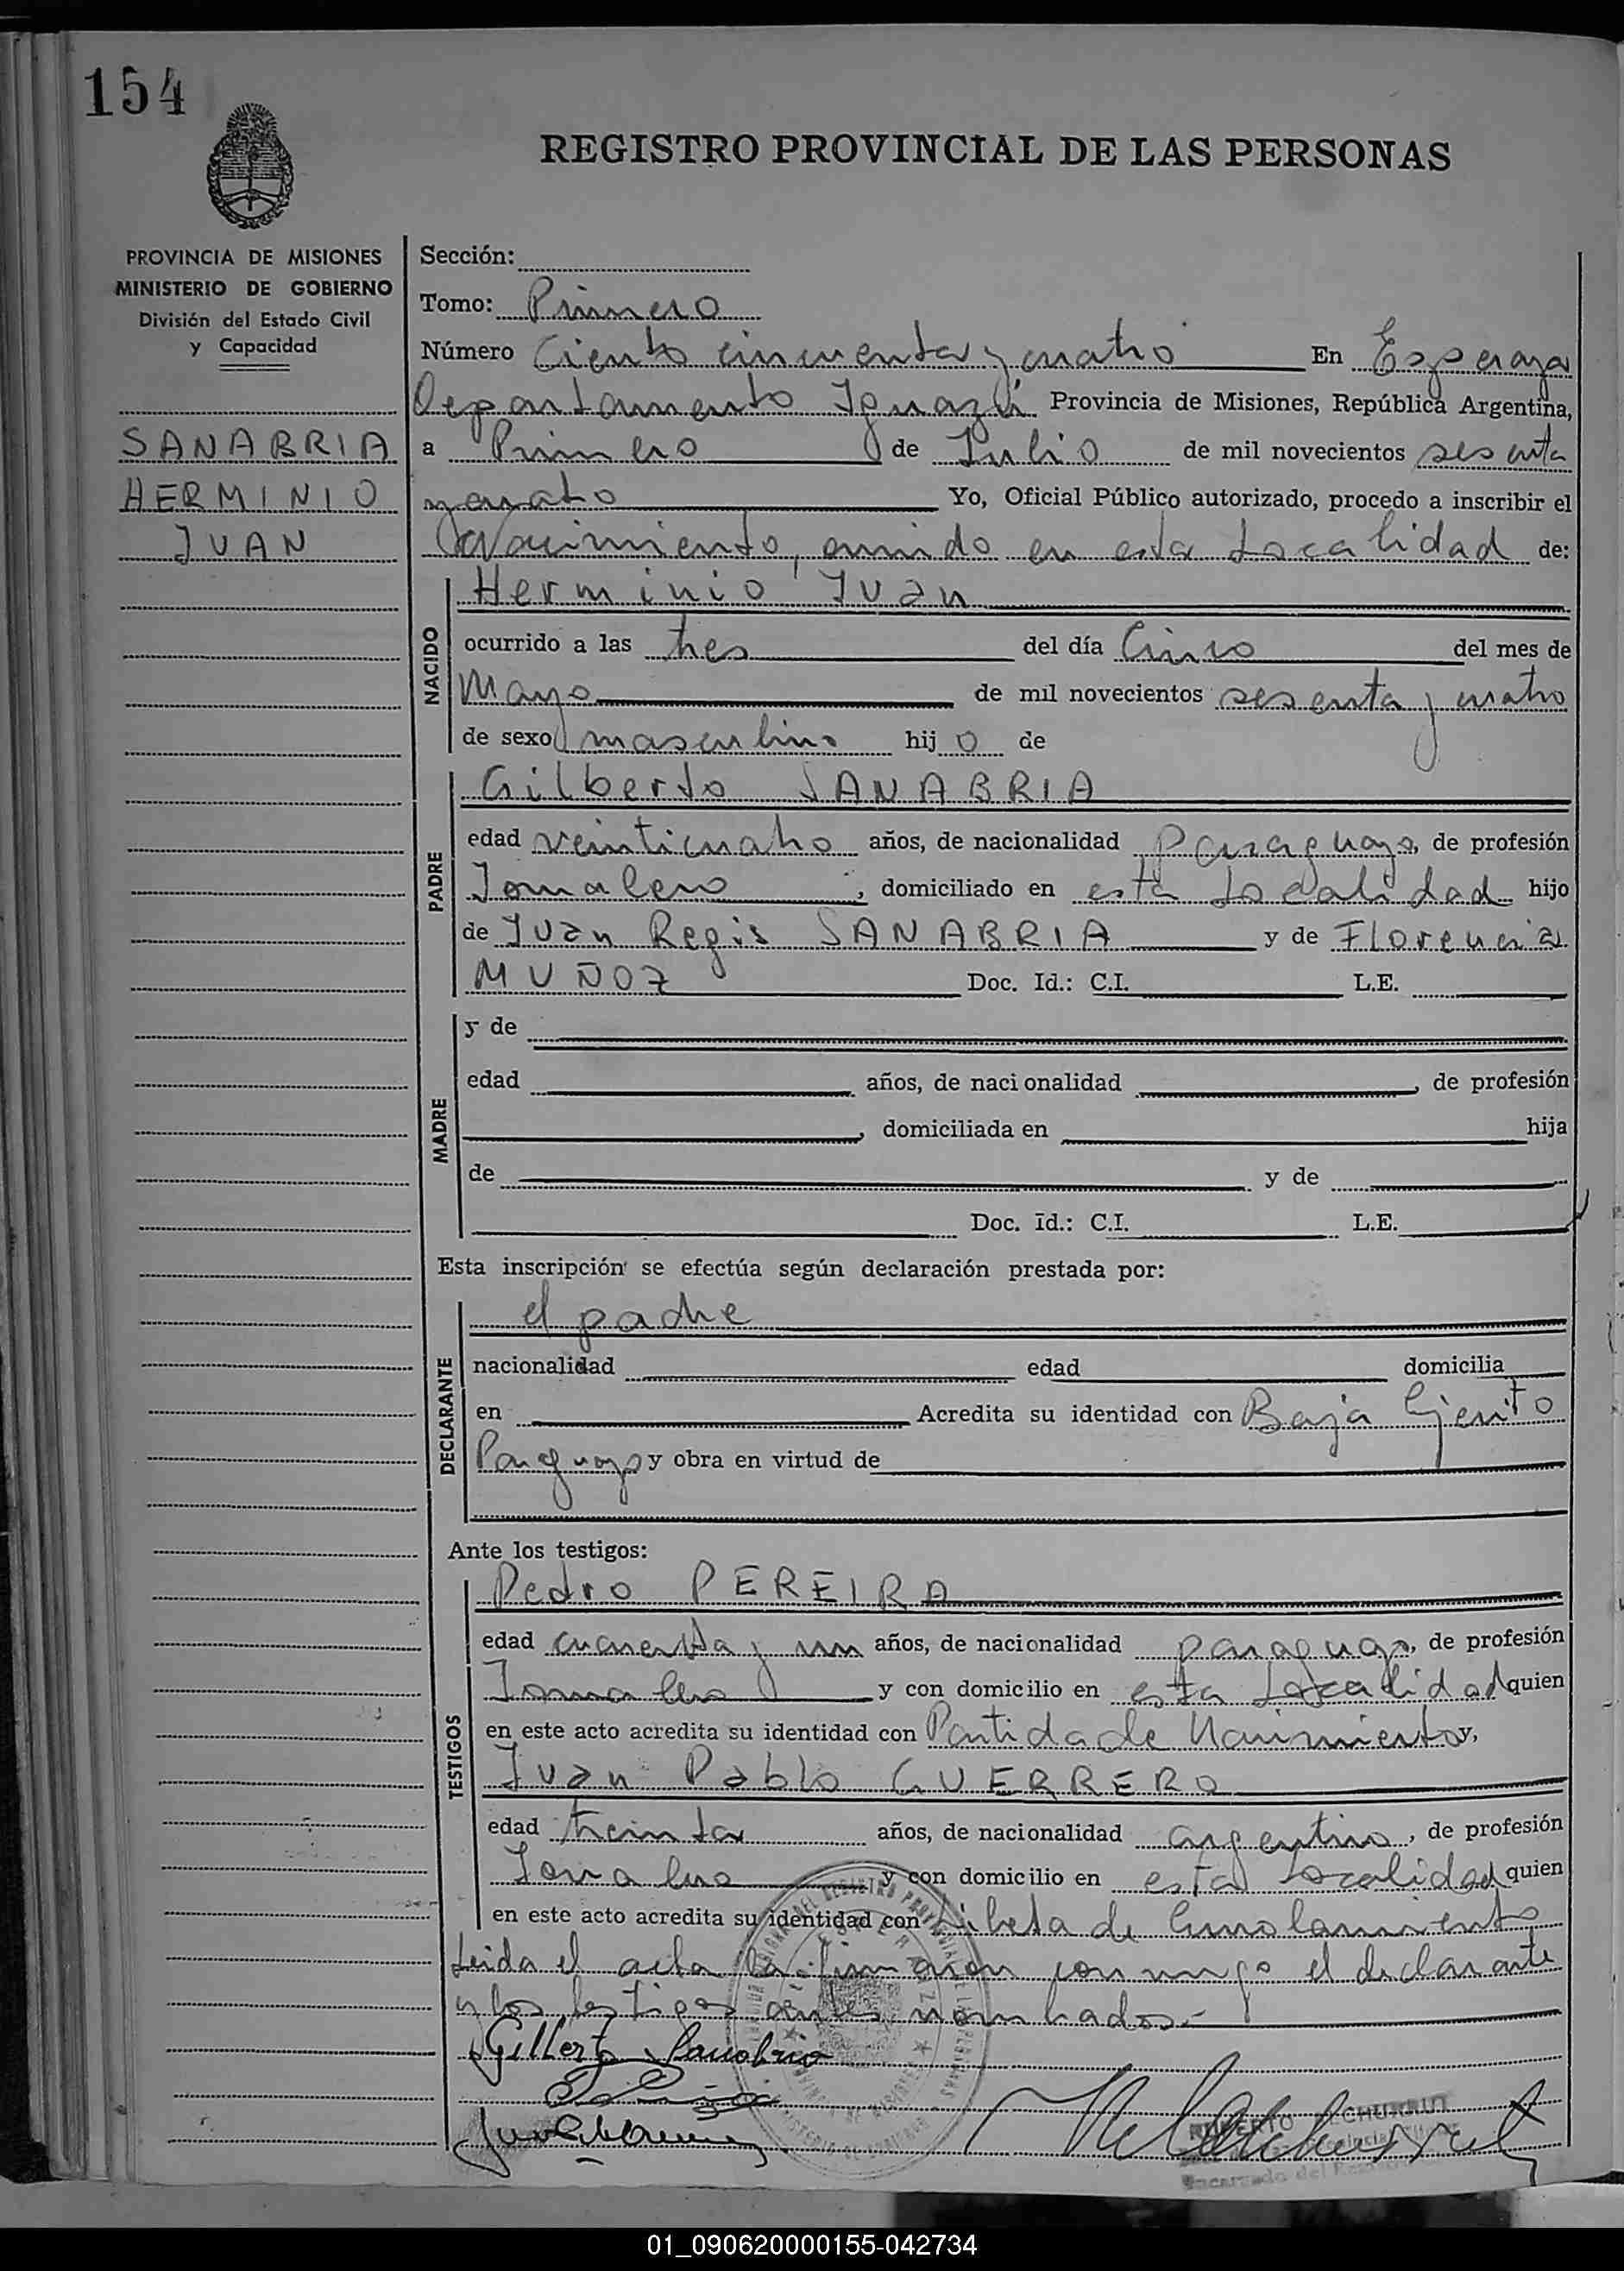 154
REGISTRO PROVINCIAL DE LAS PERSONAS
PROVINCIA DE MISIONES
MINISTERIO DE GOBIERNO
División del Estado Civil
y Capacidad
SANABRIA
HERMINIO
JUAN
Sección:
Tomo: Primero
Número Ciento cincuenta y cuatro En Esperanza
Departamento Iguazú Provincia de Misiones, República Argentina,
a Primero de Julio de mil novecientos sesenta
y cuatro Yo, Oficial Público autorizado, procedo a inscribir el
Nacimiento, ocurrido en esta Localidad de:
NACIDO
Herminio Juan
ocurrido a las tres del día Cinco del mes de
Mayo de mil novecientos sesenta y cuatro
de sexo masculino hijo de
PADRE
Gilberto SANABRIA
edad veinticuatro años, de nacionalidad Paraguayo, de profesión
Jornalero, domiciliado en esta Localidad hijo
de Juan Regis SANABRIA y de Florencia
MUÑOZ Doc. Id.: C.I. L.E.
MADRE
y de
edad años, de nacionalidad , de profesión
, domiciliada en hija
de y de
Doc. Id.: C.I. L.E.
Esta inscripción se efectúa según declaración prestada por:
DECLARANTE
el padre
nacionalidad edad domicilia
en Acredita su identidad con Baja Ejercito
Paraguayo y obra en virtud de
Ante los testigos:
TESTIGOS
Pedro PEREIRA
edad cuarenta y un años, de nacionalidad paraguayo, de profesión
Jornalero y con domicilio en esta Localidad quien
en este acto acredita su identidad con Partida de Nacimiento y,
Juan Pablo GUERRERO
edad treinta años, de nacionalidad argentino, de profesión
Jornalero y con domicilio en esta Localidad quien
en este acto acredita su identidad con Libreta de Enrolamiento
Leida el acta la firmaron conmigo el declarante
y los testigos antes nombrados.-
Gilberto Sanabria
01_090620000155-042734